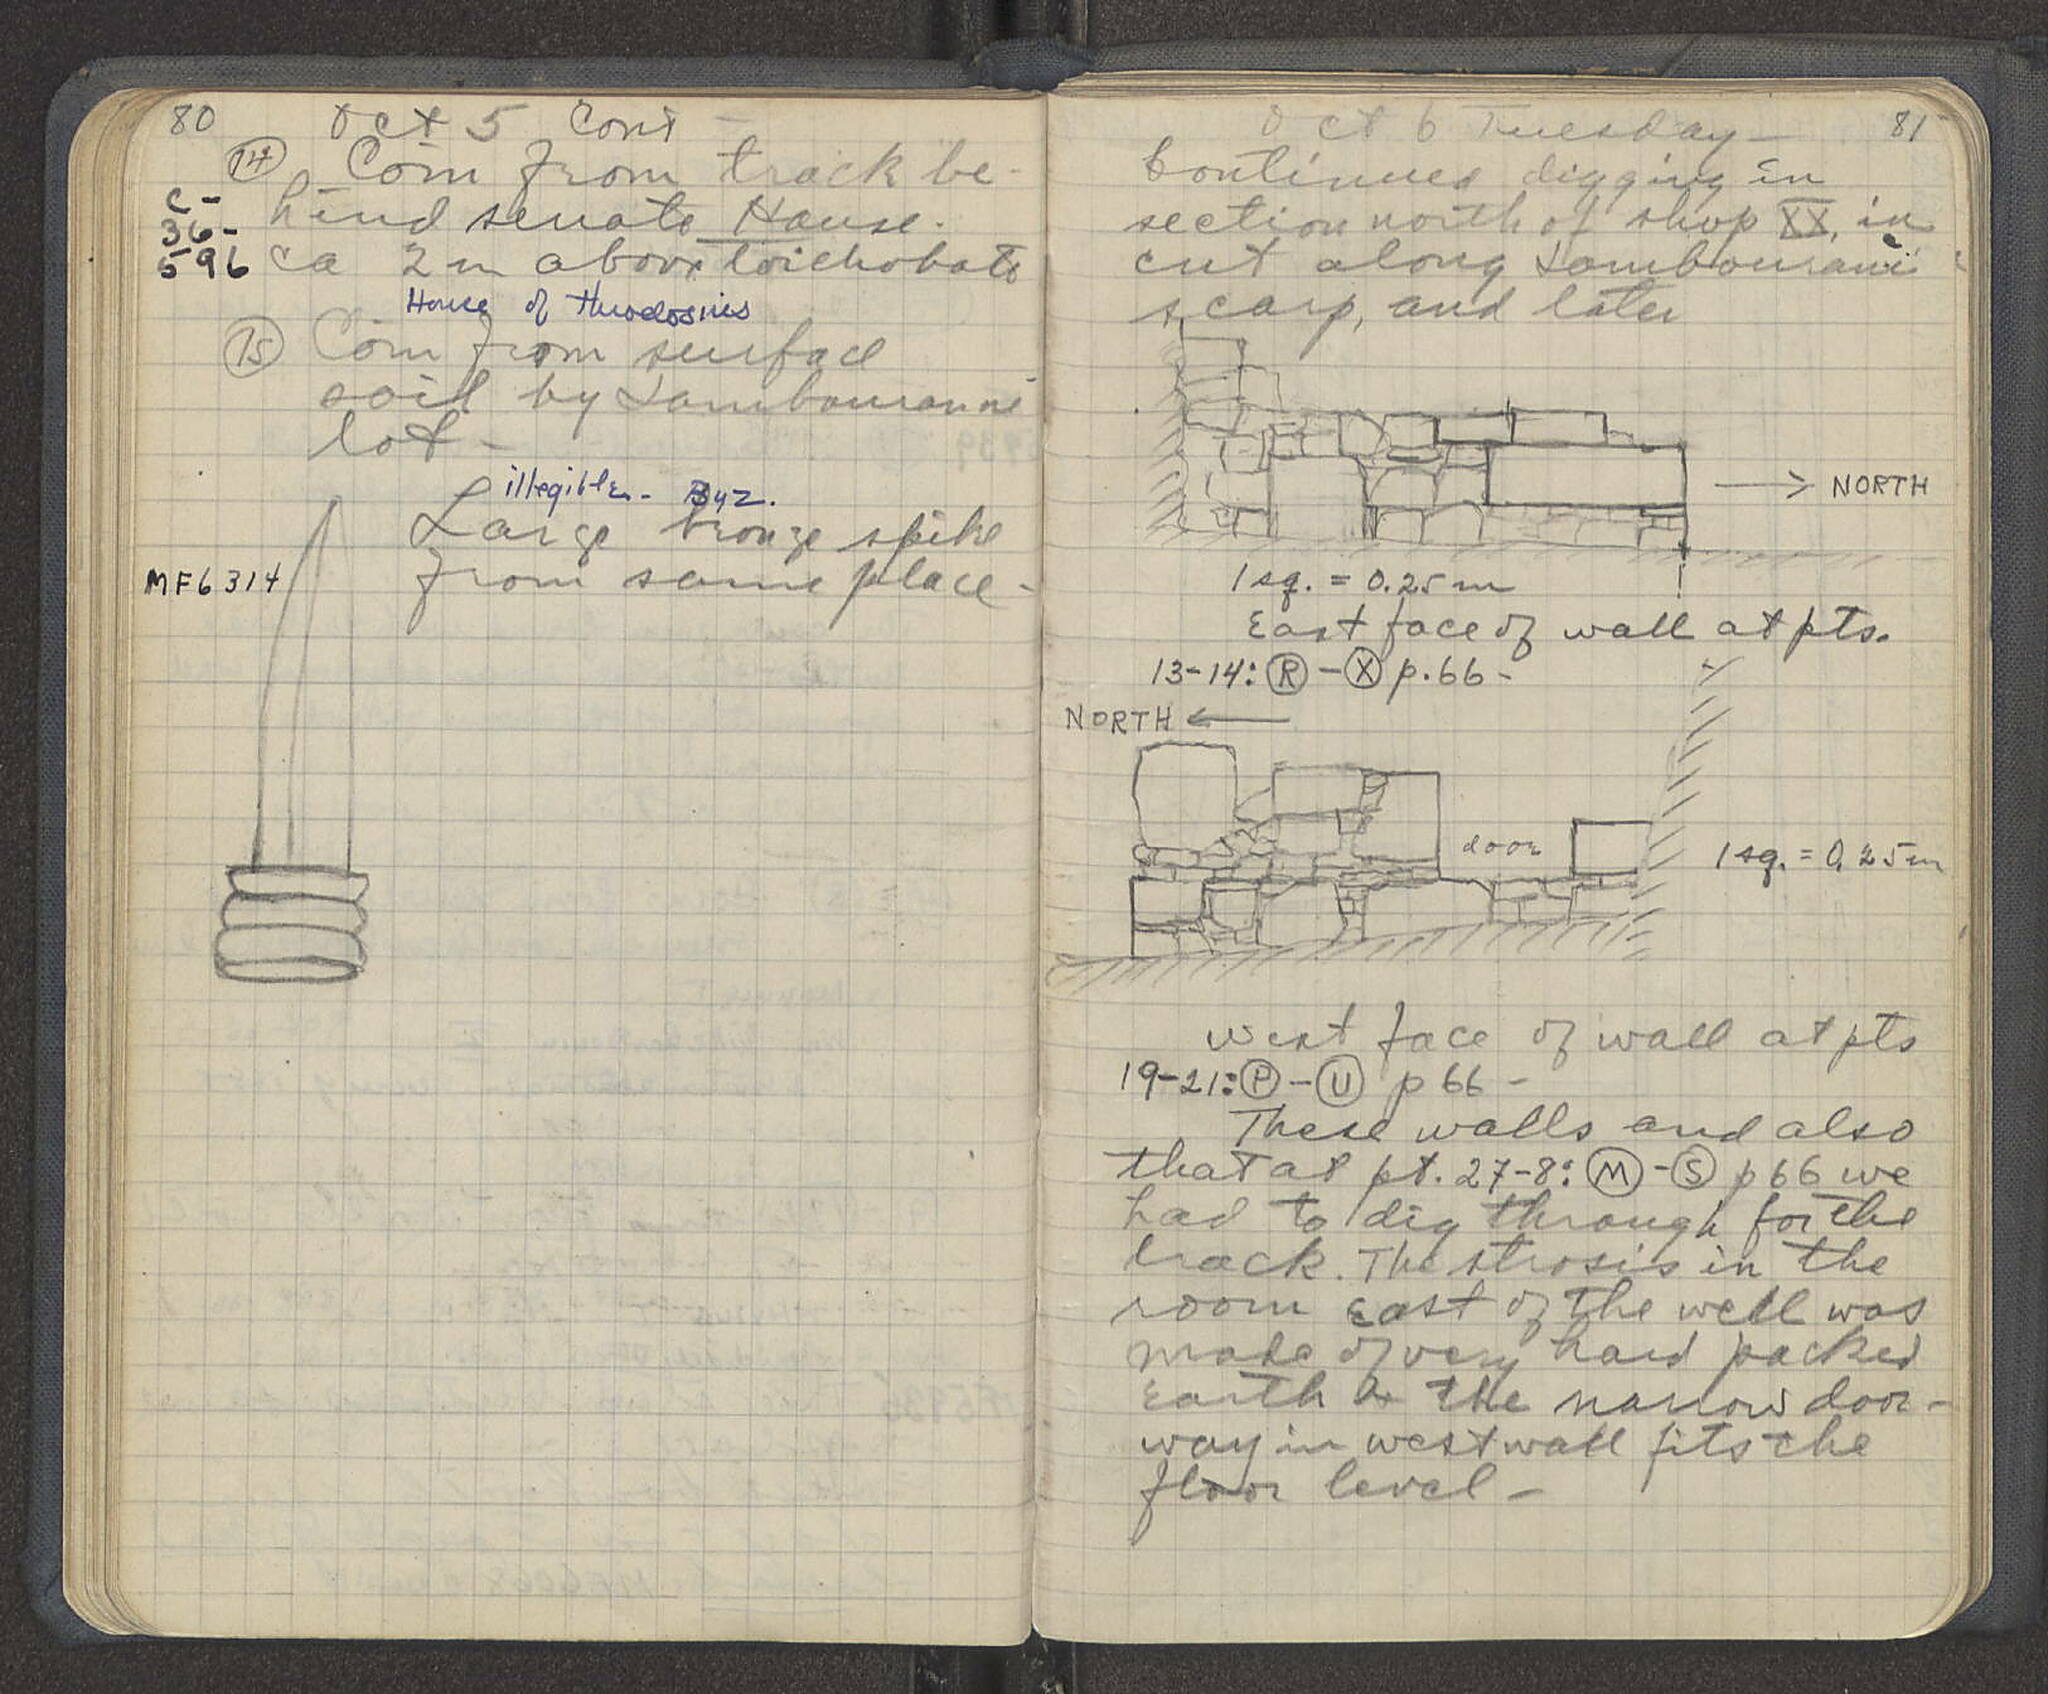 80
Oct 5 Cont -
14 Coin from track be-
hind senate House.
C-
36-
596
ca 2 m above toichobate
House of Theodosius
15 Coin from surface
soil by Lambouranne
lot -
illegible - Byz.
Large bronze spike
from same place -
MF6314
81
Oct 6 Tuesday -
Continued digging in
section north of shop XX, in
cut along
scarp, and later
NORTH
1 sq. = 0.25 m
East face of wall at pts.
13-14: R - X p. 66 -
NORTH
door
1 sq. = 0.25 m
West face of wall at pts
19-21: P - U p 66 -
These walls and also
that at pt. 27-8: M - S p 66 we
had to dig through for the
track. The strosis in the
room East of the well was
made of very hard packed
Earth & the narrow door-
way in west wall fits the
floor level -